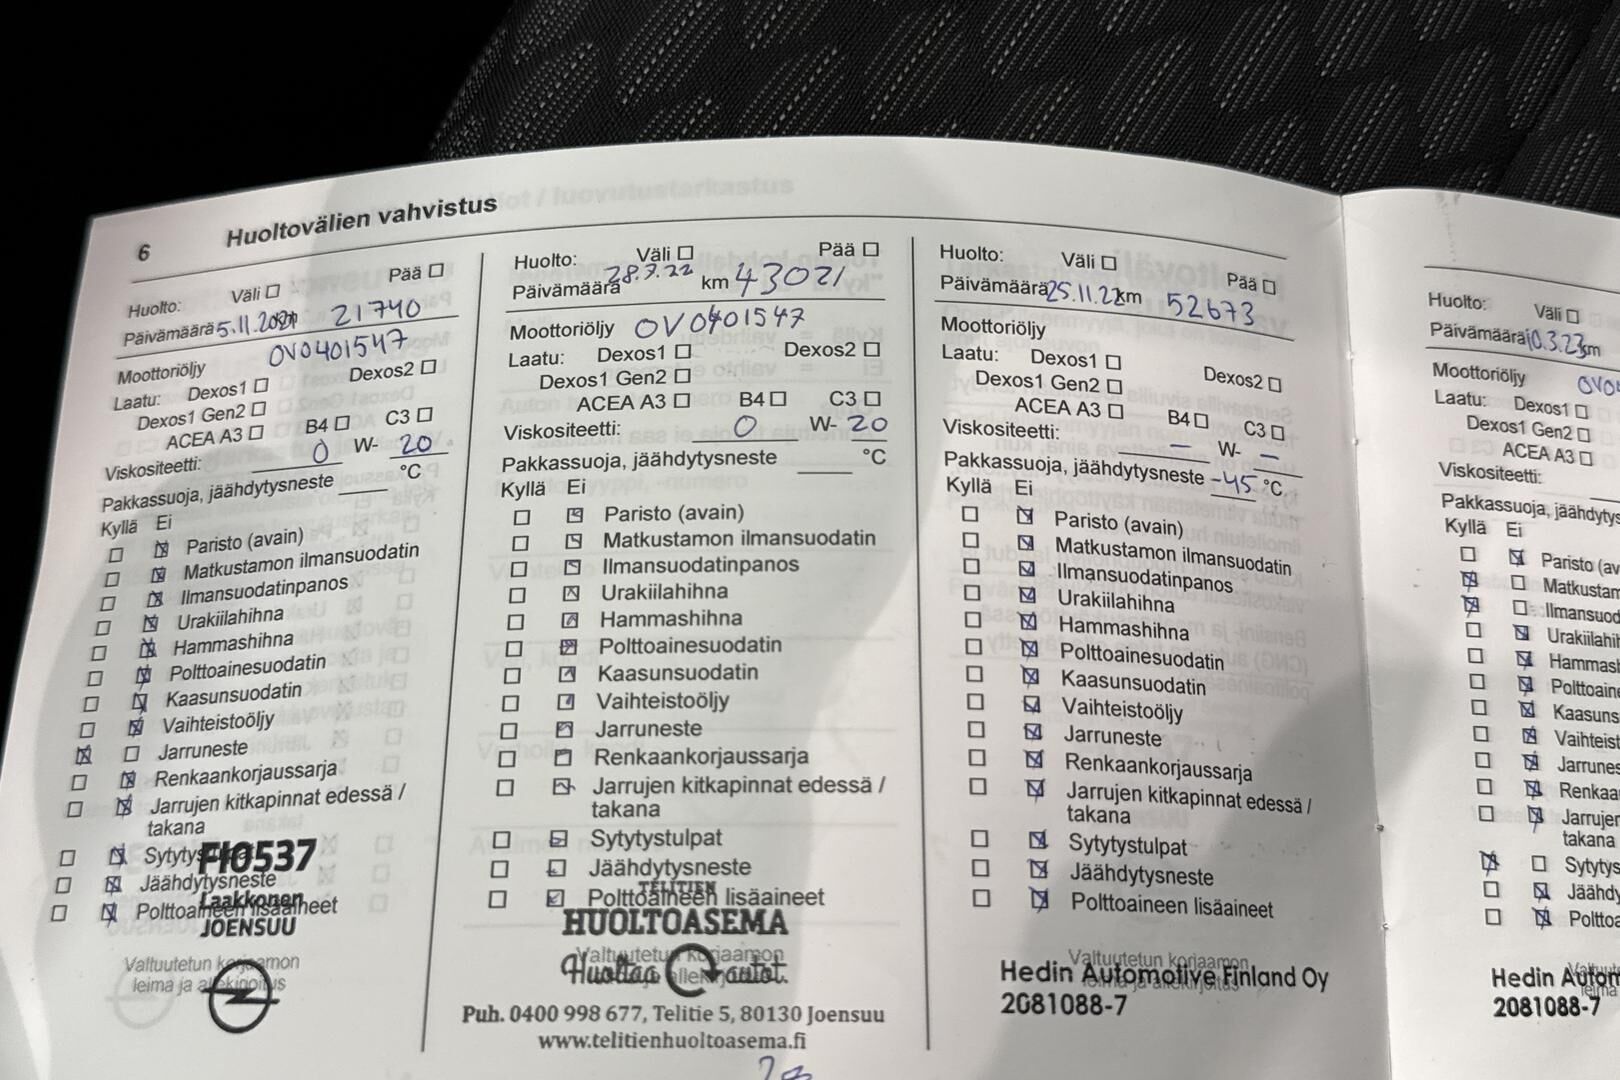 6 Huoltovälien vahvistus
Huolto: Väli Pää
Päivämäärä 5.11.2021 21740
Moottoriöljy OV0401547
Laatu: Dexos1 Dexos2
Dexos1 Gen2
ACEA A3 B4 C3
Viskositeetti: 0 W- 20
Pakkassuoja, jäähdytysneste °C
Kyllä Ei
Paristo (avain)
Matkustamon ilmansuodatin
Ilmansuodatinpanos
Urakiilahihna
Hammashihna
Polttoainesuodatin
Kaasunsuodatin
Vaihteistoöljy
Jarruneste
Renkaankorjaussarja
Jarrujen kitkapinnat edessä /
takana
FI0537
Jäähdytysneste
Polttoaineen lisäaineet
Laakkonen
JOENSUU
Valtuutetun korjaamon
leima ja allekirjoitus
Huolto: Väli Pää
Päivämäärä 28.7.22 km 43021
Moottoriöljy OV0401547
Laatu: Dexos1 Dexos2
Dexos1 Gen2
ACEA A3 B4 C3
Viskositeetti: 0 W- 20
Pakkassuoja, jäähdytysneste °C
Kyllä Ei
Paristo (avain)
Matkustamon ilmansuodatin
Ilmansuodatinpanos
Urakiilahihna
Hammashihna
Polttoainesuodatin
Kaasunsuodatin
Vaihteistoöljy
Jarruneste
Renkaankorjaussarja
Jarrujen kitkapinnat edessä /
takana
Sytytystulpat
Jäähdytysneste
Polttoaineen lisäaineet
TELITIEN
HUOLTOASEMA
Valtuutetun korjaamon
Huoltaa autot.
Puh. 0400 998 677, Telitie 5, 80130 Joensuu
www.telitienhuoltoasema.fi
Huolto: Väli Pää
Päivämäärä 25.11.22 km 52673
Moottoriöljy
Laatu: Dexos1 Dexos2
Dexos1 Gen2
ACEA A3 B4 C3
Viskositeetti: — W- —
Pakkassuoja, jäähdytysneste -45 °C
Kyllä Ei
Paristo (avain)
Matkustamon ilmansuodatin
Ilmansuodatinpanos
Urakiilahihna
Hammashihna
Polttoainesuodatin
Kaasunsuodatin
Vaihteistoöljy
Jarruneste
Renkaankorjaussarja
Jarrujen kitkapinnat edessä /
takana
Sytytystulpat
Jäähdytysneste
Polttoaineen lisäaineet
Valtuutetun korjaamon
leima ja allekirjoitus
Hedin Automotive Finland Oy
2081088-7
Huolto: Väli
Päivämäärä 10.3.23 km
Moottoriöljy OV0
Laatu: Dexos1
Dexos1 Gen2
ACEA A3
Viskositeetti:
Pakkassuoja, jäähdytys
Kyllä Ei
Paristo (av
Matkustam
Ilmansuod
Urakiilahih
Hammash
Polttoaine
Kaasuns
Vaihteist
Jarrunes
Renkaa
Jarrujer
takana
Sytytys
Jäähdy
Polttoa
Hedin Autom
2081088-7